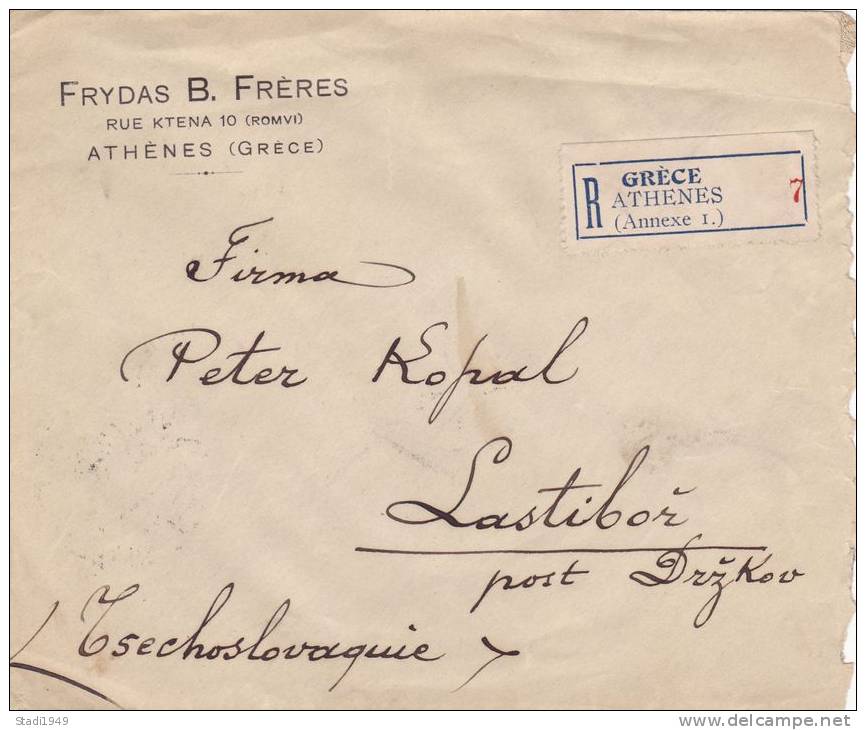 FRYDAS B. FRÈRES
RUE KTENA 10 (ROMVI)
ATHÈNES (GRÈCE)
R
GRÈCE
ATHENES
(Annexe 1.)
7
Firma
Peter Kopal
Lastiboř
post Držkov
(Tsechoslovaquie)
Stadi1949
delcampe.net